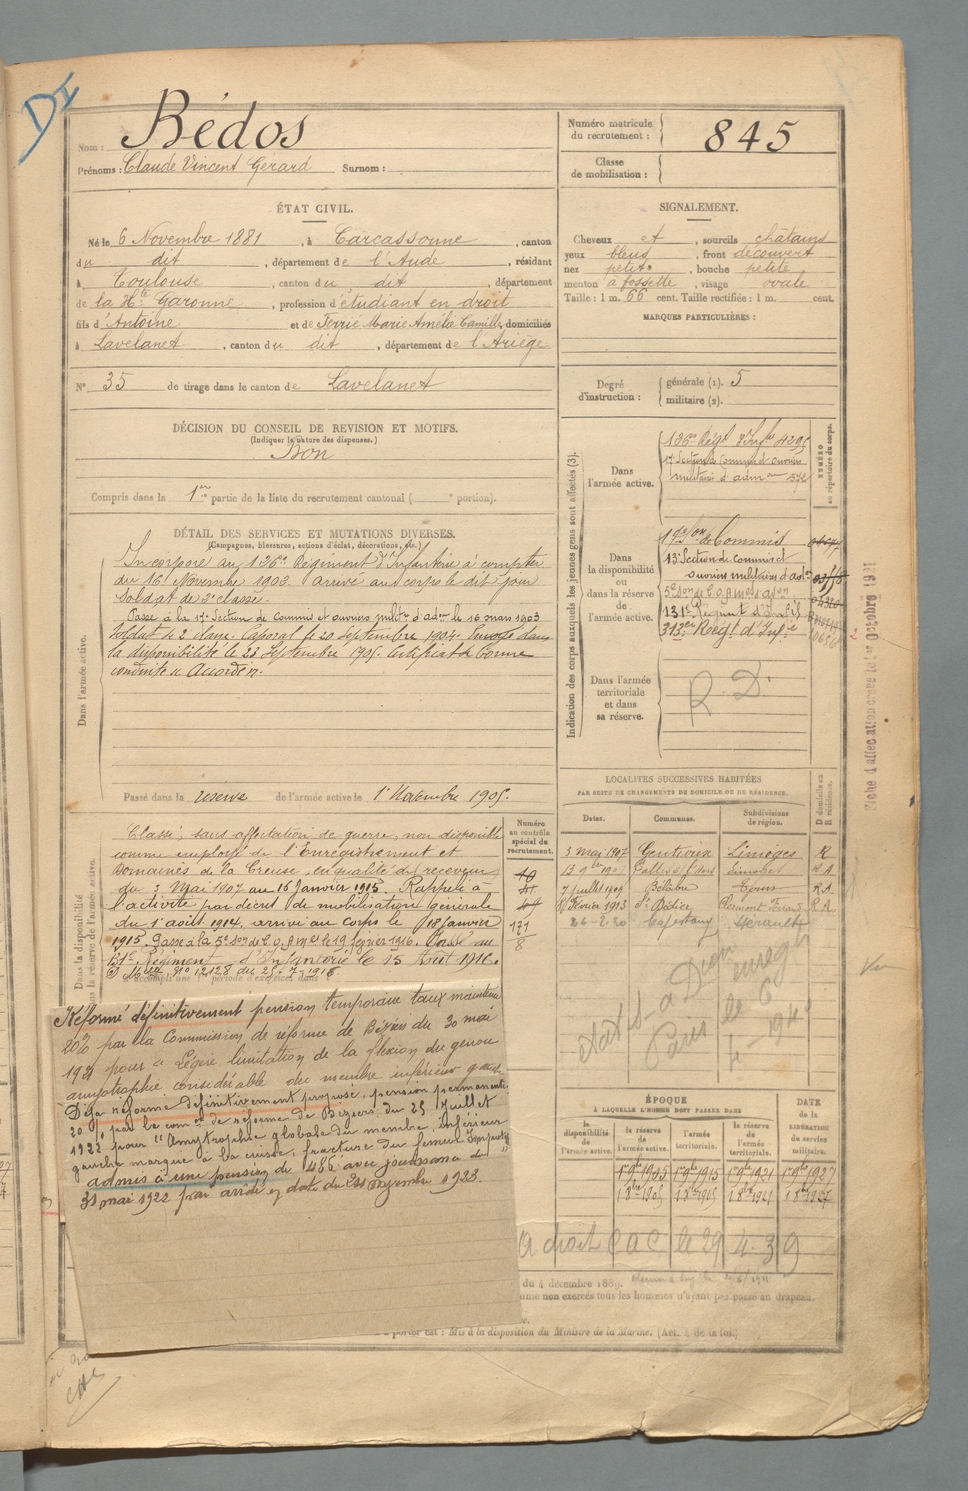 DI
Nom : Bédos
Prénoms : Claude Vincent Gérard Surnom :
Numéro matricule du recrutement : 845
Classe de mobilisation :
ÉTAT CIVIL.
Né le 6 Novembre 1881, à Carcassonne, canton
du dit, département de l'Aude, résidant
à Toulouse, canton du dit, département
de la Hte Garonne, profession d'étudiant en droit
fils d'Antoine et de Terrié Marie Amélie Camille, domiciliés
à Lavelanet, canton du dit, département de l'Ariège
N° 35 de tirage dans le canton de Lavelanet
SIGNALEMENT.
Cheveux et, sourcils châtains
yeux bleus, front découvert
nez petit, bouche petite
menton à fossette, visage ovale
Taille : 1 m. 66 cent. Taille rectifiée : 1 m. cent.
MARQUES PARTICULIÈRES :
Degré d'instruction : générale (1). 5
militaire (2).
DÉCISION DU CONSEIL DE REVISION ET MOTIFS.
(Indiquer la nature des dispenses.)
Bon
Compris dans la 1re partie de la liste du recrutement cantonal ( e portion).
DÉTAIL DES SERVICES ET MUTATIONS DIVERSES.
(Campagnes, blessures, actions d'éclat, décorations, etc.)
Dans l'armée active.
Incorporé au 126e Régiment d'Infanterie à compter
du 16 Novembre 1902 arrivé au corps le dit jour
Soldat de 2e classe.
Passé à la 17e Section de Commis et ouvriers milres d'adon le 16 mars 1903
Soldat de 2e classe. Caporal le 20 septembre 1904. Envoyé dans
la disponibilité le 23 Septembre 1905. Certificat de bonne
conduite « Accordé ».
Passé dans la réserve de l'armée active le 1r Novembre 1905.
Indication des corps auxquels les jeunes gens sont affectés (3).
NUMÉRO au répertoire du corps.
Dans l'armée active.
126e Régt d'Infie 4295
17e Section de Commis et ouvriers
militaires d'admon 572
Dans la disponibilité ou dans la réserve de l'armée active.
17e Son de Commis
13e Section de commis et
ouvriers militaires d'adon
5e Son de C.O.A.
131e Régiment d'Infie
313e Régt d'Infie
Dans l'armée territoriale et dans sa réserve.
R. D.
Fiche d'affectation créée le 1er Octobre 1921
LOCALITÉS SUCCESSIVES HABITÉES
PAR SUITE DE CHANGEMENTS DE DOMICILE OU DE RÉSIDENCE.
Dates. Communes. Subdivisions de région. D domicile ou R résidence.
3 mai 1907 Gentioux Limoges R
7 juillet 1909 Bélâbre Tours R.A
Février 1913 St Didier Clermont Ferrand R.A
26-2.20 Capestang Hérault
Dans la disponibilité
et dans la réserve de l'armée active.
Numéro au contrôle spécial du recrutement.
121
8
Classé, sans affectation de guerre, non disponible
comme employé de l'Enregistrement et
Domaines de la Creuse, en qualité de receveur
du 3 Mai 1907 au 16 Janvier 1915. Rappelé à
l'activité par décret de mobilisation générale
du 1er août 1914, arrivé au corps le 18 Janvier
1915. Passé à la 5e Son de C.O.A. le 19 février 1916. Passé au
131e Régiment d'Infanterie le 15 Août 1916.
Réformé définitivement pension temporaire taux maintenu
20% par la Commission de réforme de Béziers du 30 mai
1921 pour « Légère limitation de la flexion du genou
amyotrophie considérable du membre inférieur gauche
Déjà réformé définitivement proposé, pension permanente
20% par la comon de réforme de Béziers du 25 Juillet
1922 pour "Amyotrophie globale du membre inférieur
gauche marqué à la cuisse, fracture du fémur
admis à une pension de 480f avec jouissance du
31 mai 1922 par arrêté en date du 21 Septembre 1923.
ÉPOQUE
À LAQUELLE L'HOMME DOIT PASSER DANS
la disponibilité de l'armée active. la réserve de l'armée active. l'armée territoriale. la réserve de l'armée territoriale.
DATE de la LIBÉRATION du service militaire.
1r 9bre 1905 1r 9bre 1915 1r 9bre 1921 1r 9bre 1927
a droit C a C le 29 4. 39
du 4 décembre 1889.
comme non exercés tous les hommes n'ayant pas passé au drapeau.
à porter est : Mis à la disposition du Ministre de la Marine. (Art. 4 de la loi.)